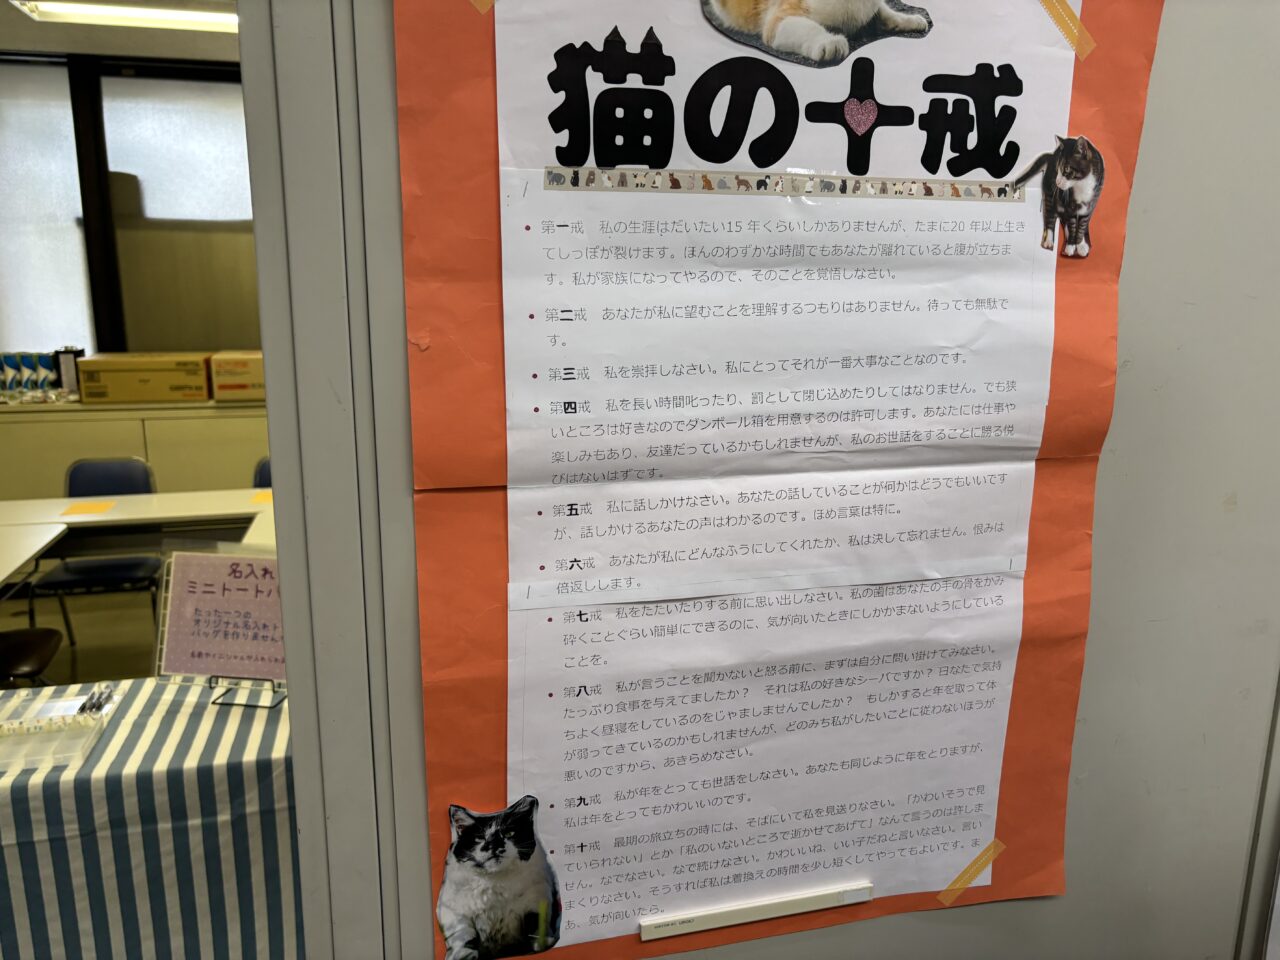 猫の十戒
第一戒　私の生涯はだいたい15 年くらいしかありませんが、たまに20 年以上生き
てしっぽが裂けます。ほんのわずかな時間でもあなたが離れていると腹が立ちま
す。私が家族になってやるので、そのことを覚悟しなさい。
第二戒　あなたが私に望むことを理解するつもりはありません。待っても無駄で
す。
第三戒　私を崇拝しなさい。私にとってそれが一番大事なことなのです。
第四戒　私を長い時間叱ったり、罰として閉じ込めたりしてはなりません。でも狭
いところは好きなのでダンボール箱を用意するのは許可します。あなたには仕事や
楽しみもあり、友達だっているかもしれませんが、私のお世話をすることに勝る悦
びはないはずです。
第五戒　私に話しかけなさい。あなたの話していることが何かはどうでもいいです
が、話しかけるあなたの声はわかるのです。ほめ言葉は特に。
第六戒　あなたが私にどんなふうにしてくれたか、私は決して忘れません。恨みは
倍返しします。
第七戒　私をたたいたりする前に思い出しなさい。私の歯はあなたの手の骨をかみ
砕くことぐらい簡単にできるのに、気が向いたときにしかかまないようにしている
ことを。
第八戒　私が言うことを聞かないと怒る前に、まずは自分に問い掛けてみなさい。
たっぷり食事を与えてましたか？　それは私の好きなシーバですか？ 日なたで気持
ちよく昼寝をしているのをじゃましませんでしたか？　もしかすると年を取って体
が弱ってきているのかもしれませんが、どのみち私がしたいことに従わないほうが
悪いのですから、あきらめなさい。
第九戒　私が年をとっても世話をしなさい。あなたも同じように年をとりますが、
私は年をとってもかわいいのです。
第十戒　最期の旅立ちの時には、そばにいて私を見送りなさい。「かわいそうで見
ていられない」とか「私のいないところで逝かせてあげて」なんて言うのは許しま
せん。なでなさい。なで続けなさい。かわいいね、いい子だねと言いなさい。言い
まくりなさい。そうすれば私は着換えの時間を少し短くしてやってもよいです。ま
あ、気が向いたら。
名入れ
ミニトートバ
たった一つの
オリジナル名入れト
バッグを作りません